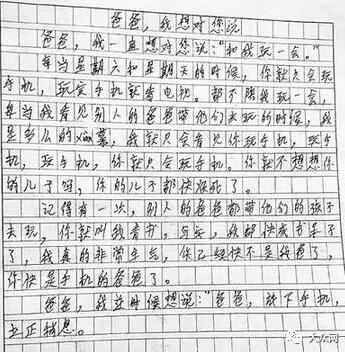 爸爸，我想对您说
爸爸，我一直想对您说："和我玩一会。"
每当星期六和星期天的时候，你就只会玩
手机，玩完手机就看电视。都不陪我玩一会，
每当我看见别人的爸爸带他们去玩的时候，我
是多么的xiàn慕，我就只会看见你玩手机，玩手
机，玩手机，你就只会玩手机。你就不想想你
的儿子吗，你的儿子都快疯了。
记得有一次，别人的爸爸都带他们的孩子
去玩，你就叫我看书，今天，我都快成书呆子
了，我真的非常生气，你已经快不是我爸了，
你快是手机的爸爸了。
爸爸，我这时候想说："爸爸，放下手机，
立正稍息。
大众网